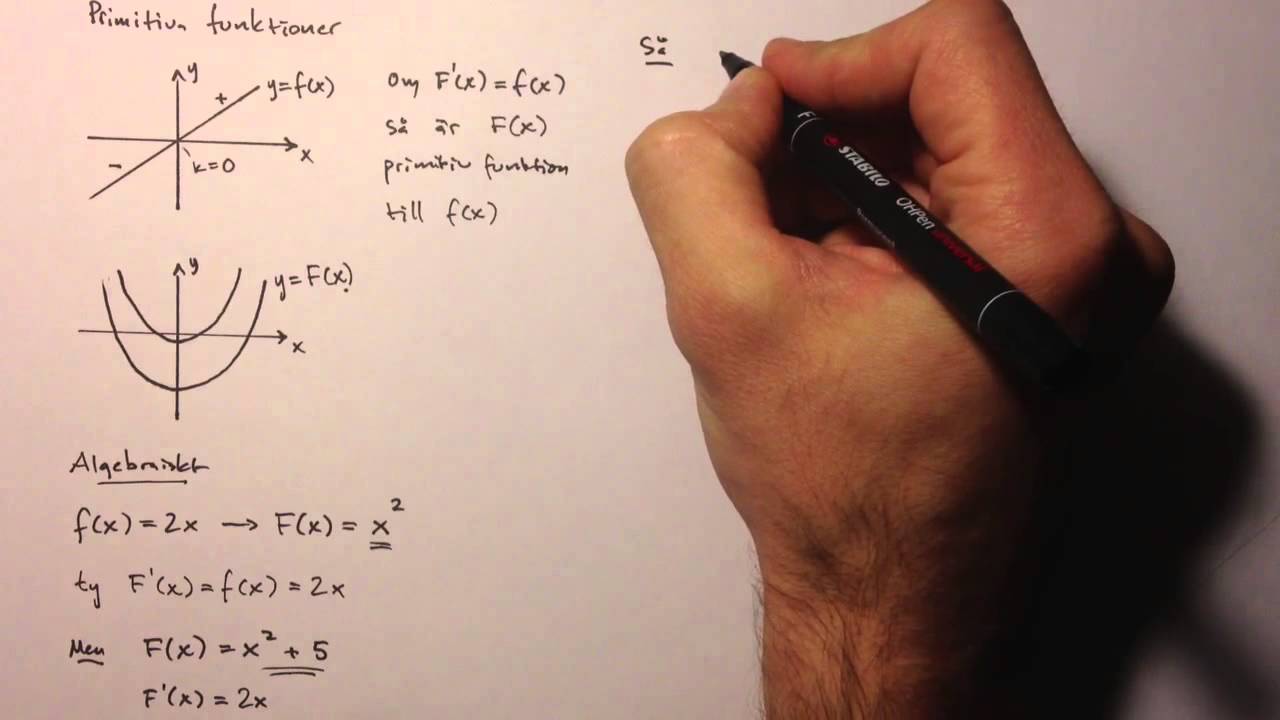 Primitiva funktioner
y
y=f(x)
+
-
k=0
x
Om F'(x) = f(x)
så är F(x)
primitiv funktion
till f(x)
y
y=F(x)
x
Algebraiskt
f(x) = 2x → F(x) = x²
ty F'(x) = f(x) = 2x
Men F(x) = x² + 5
F'(x) = 2x
Så
STABILO OHPen universal